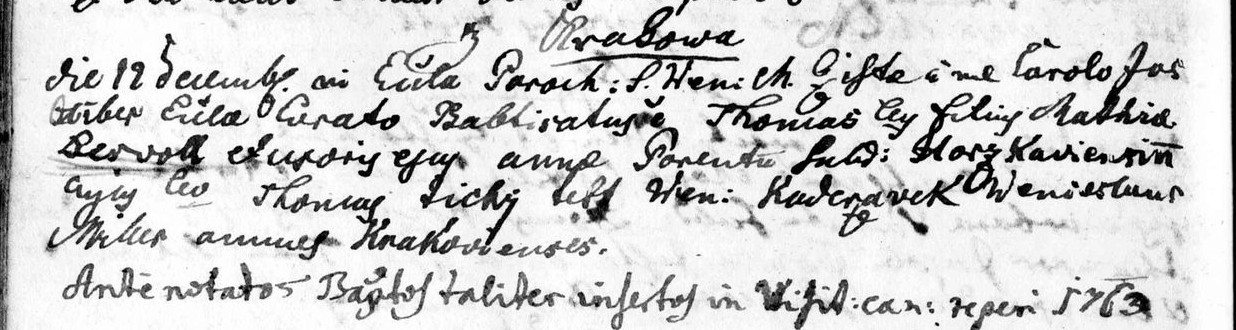 z Krakowa
die 12 decemb. in Eula Paroch: S. Wen: ch. giste a me Carolo Jos
Stiber Eulæ Curato Babtisatus è Thomas leg filius Mathiæ
Bervoll et uxoris ejus annæ Parentu subd: Horzkaviensiu
cujus lev Thomas tichy test Wen: Kaderavek Wenieslaus
Miller omnnes Krakovienses.
Ante notatos Baptos taliter insertos in Visit: can: reperi 1763